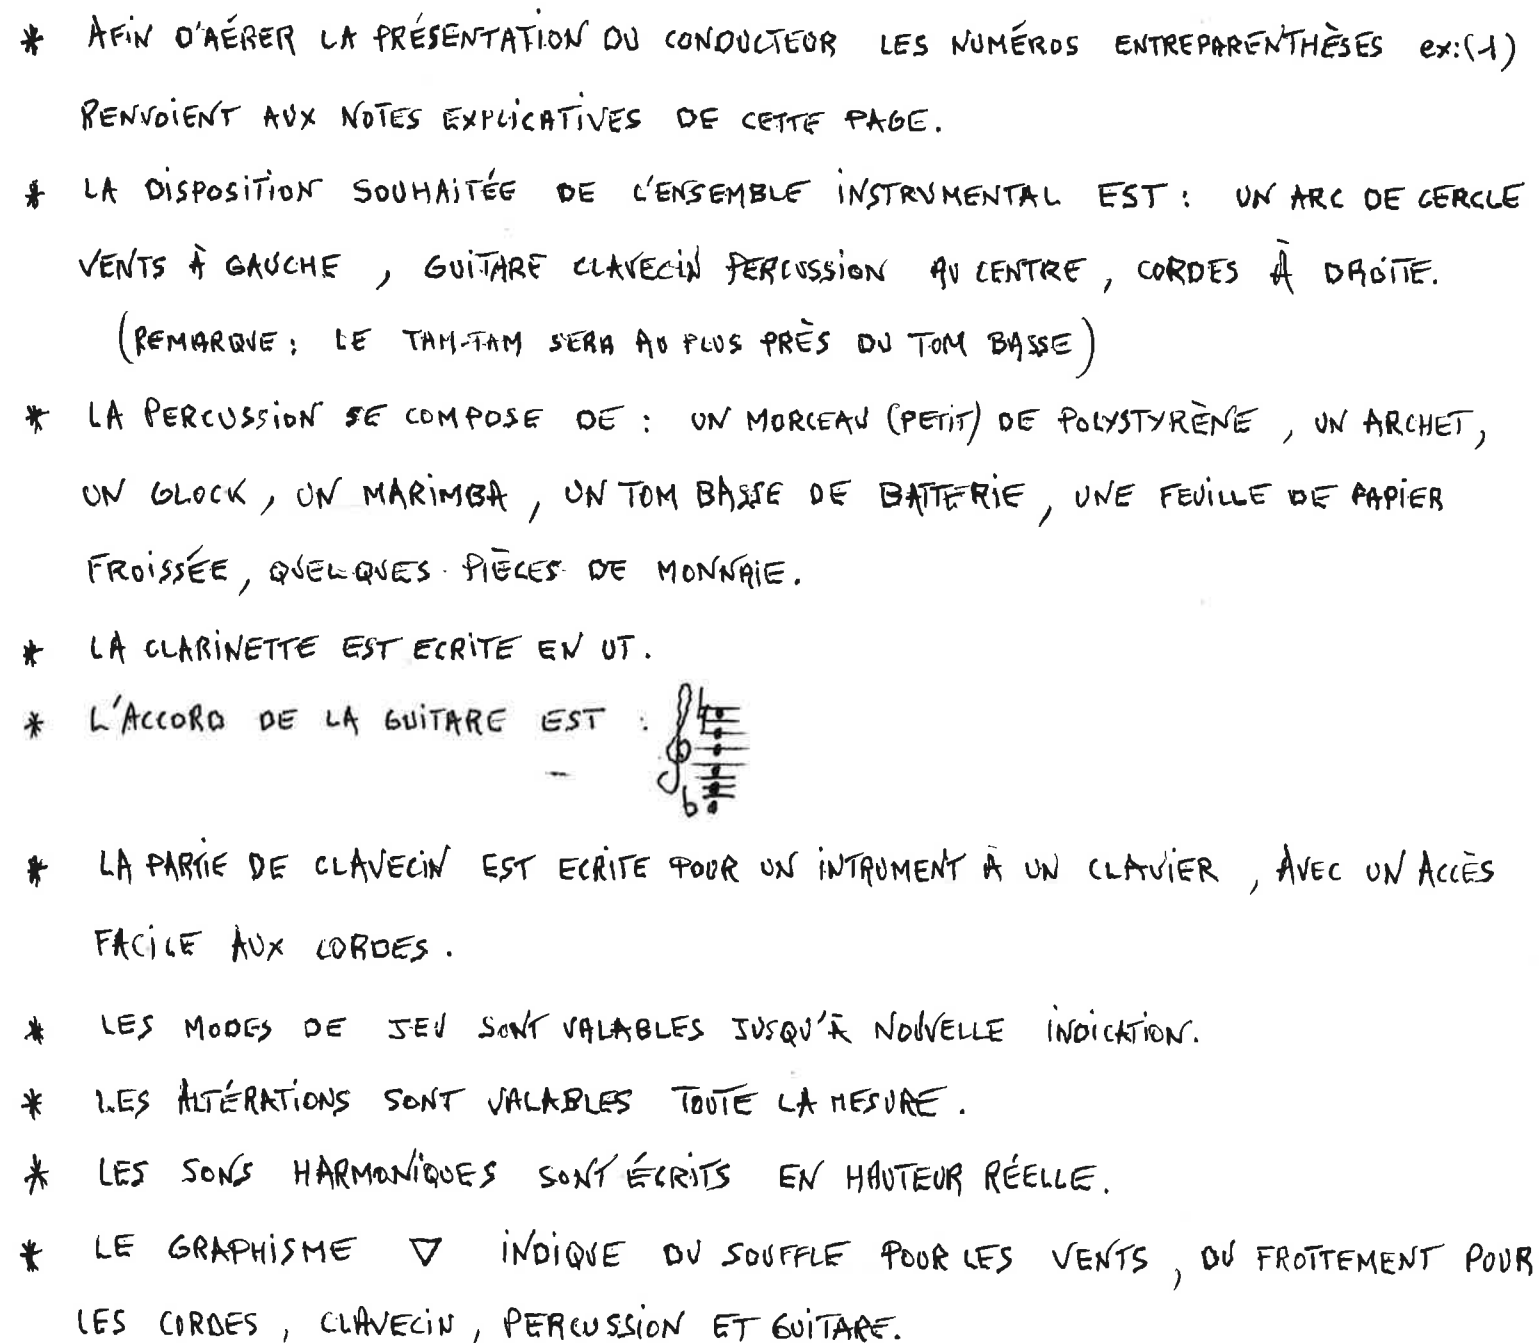 * AFIN D'AÉRER LA PRÉSENTATION DU CONDUCTEUR LES NUMÉROS ENTREPARENTHÈSES ex:(1)
RENVOIENT AUX NOTES EXPLICATIVES DE CETTE PAGE.
* LA DISPOSITION SOUHAITÉE DE L'ENSEMBLE INSTRUMENTAL EST : UN ARC DE CERCLE
VENTS À GAUCHE , GUITARE CLAVECIN PERCUSSION AU CENTRE , CORDES À DROITE.
(REMARQUE : LE TAM-TAM SERA AU PLUS PRÈS DU TOM BASSE)
* LA PERCUSSION SE COMPOSE DE : UN MORCEAU (PETIT) DE POLYSTYRÈNE , UN ARCHET,
UN GLOCK , UN MARIMBA , UN TOM BASSE DE BATTERIE , UNE FEUILLE DE PAPIER
FROISSÉE , QUELQUES PIÈCES DE MONNAIE.
* LA CLARINETTE EST ECRITE EN UT.
* L'ACCORD DE LA GUITARE EST :
* LA PARTIE DE CLAVECIN EST ECRITE POUR UN INTRUMENT À UN CLAVIER , AVEC UN ACCÈS
FACILE AUX CORDES .
* LES MODES DE JEU SONT VALABLES JUSQU'À NOUVELLE INDICATION.
* LES ALTÉRATIONS SONT VALABLES TOUTE LA MESURE .
* LES SONS HARMONIQUES SONT ÉCRITS EN HAUTEUR RÉELLE.
* LE GRAPHISME ▽ INDIQUE DU SOUFFLE POUR LES VENTS , DU FROTTEMENT POUR
LES CORDES , CLAVECIN , PERCUSSION ET GUITARE.